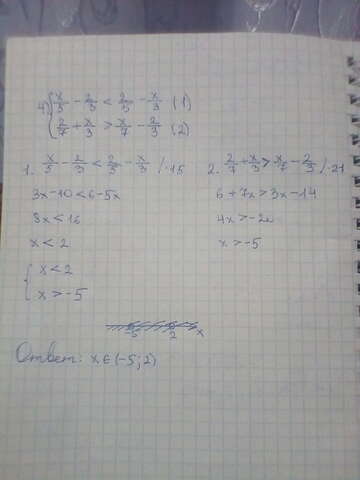 4) { x/5 - 2/3 < 2/5 - x/3 (1)
2/7 + x/3 > x/7 - 2/3 (2)
1. x/5 - 2/3 < 2/5 - x/3 /·15
3x-10<6-5x
8x<16
x<2
2. 2/7 + x/3 > x/7 - 2/3 /·21
6+7x>3x-14
4x>-20
x>-5
{ x<2
x>-5
-5 2 x
Ответ: x∈(-5;2)